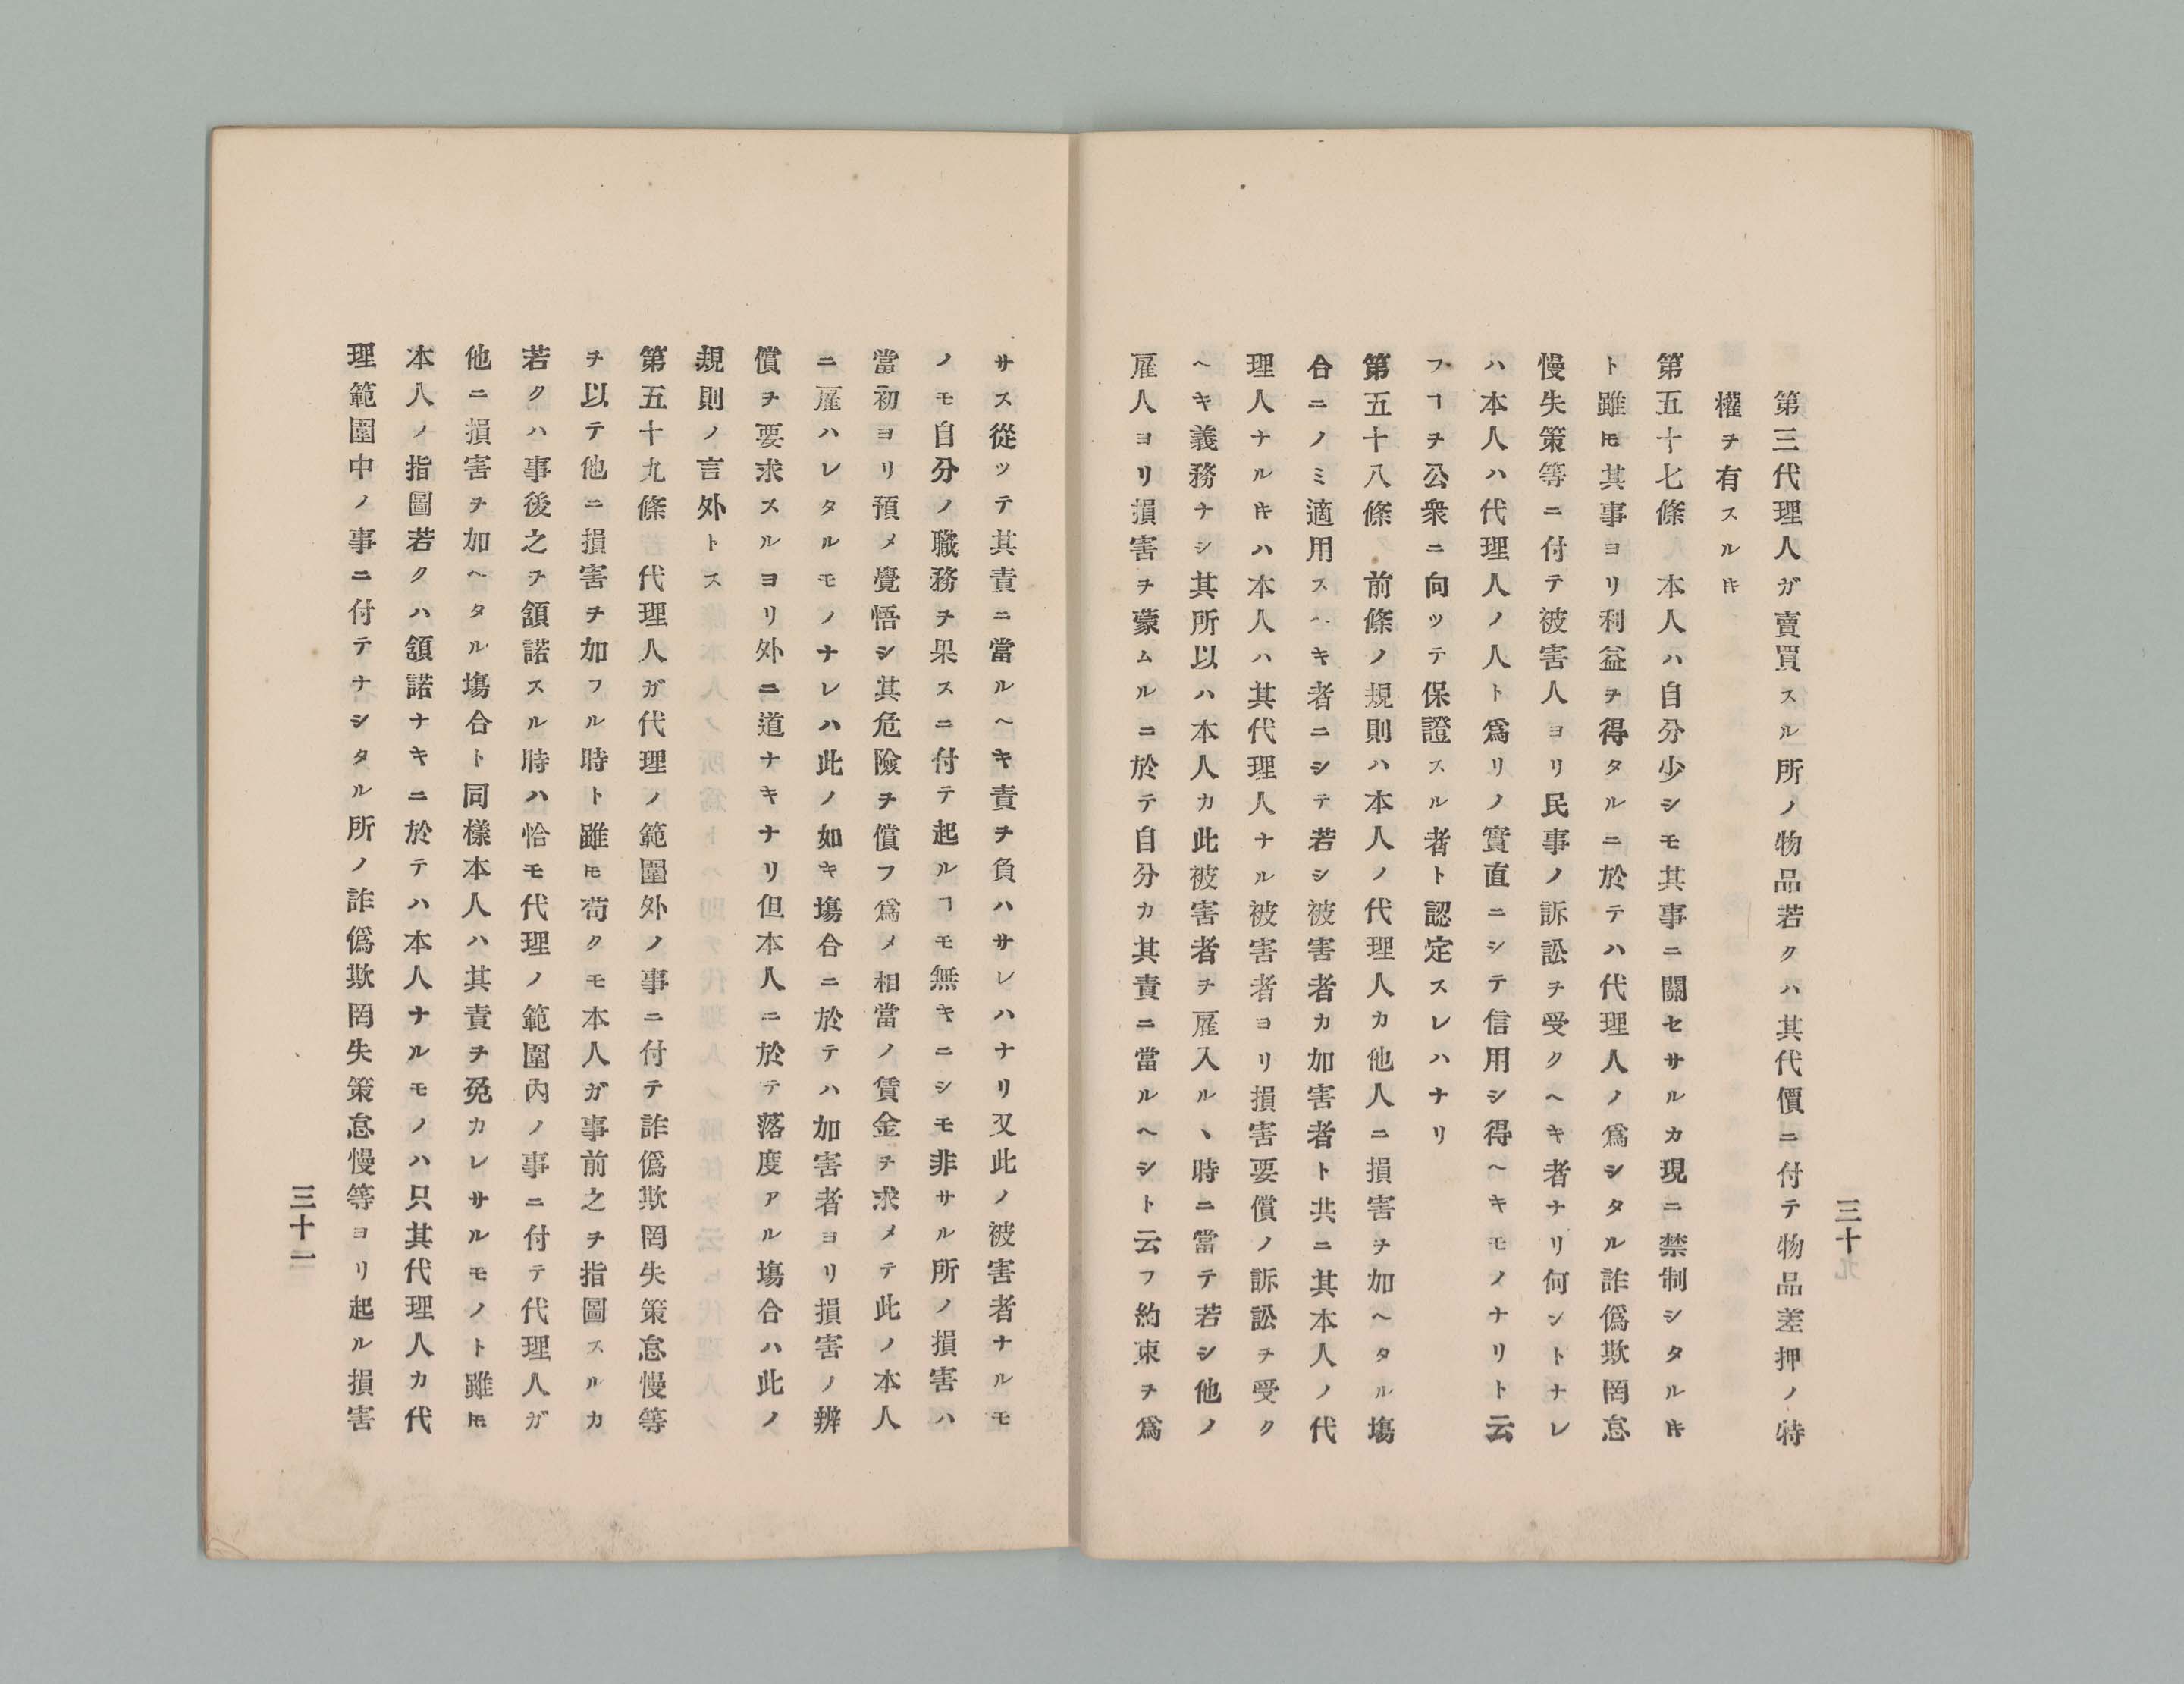 三十
第三代理人ガ賣買スル所ノ物品若クハ其代價ニ付テ物品差押ノ特
權ヲ有スルㇳキ
第五十七條　本人ハ自分少シモ其事ニ關セサルカ現ニ禁制シタルㇳキ
ト雖𪜈其事ヨリ利益ヲ得タルニ於テハ代理人ノ爲シタル詐僞欺罔怠
慢失策等ニ付テ被害人ヨリ民事ノ訴訟ヲ受クヘキ者ナリ何ントナレ
ハ本人ハ代理人ノ人ト爲リノ實直ニシテ信用シ得ヘキモノナリト云
フヿヲ公衆ニ向ッテ保證スル者ト認定スレハナリ
第五十八條　前條ノ規則ハ本人ノ代理人カ他人ニ損害ヲ加ヘタル塲
合ニノミ適用スヘキ者ニシテ若シ被害者カ加害者ト共ニ其本人ノ代
理人ナルㇳキハ本人ハ其代理人ナル被害者ヨリ損害要償ノ訴訟ヲ受ク
ヘキ義務ナシ其所以ハ本人カ此被害者ヲ雇入ルヽ時ニ當テ若シ他ノ
雇人ヨリ損害ヲ蒙ムルニ於テ自分カ其責ニ當ルヘシト云フ約束ヲ爲
サス從ッテ其責ニ當ルヘキ責ヲ負ハサレハナリ又此ノ被害者ナルモ
ノモ自分ノ職務ヲ果スニ付テ起ルヿモ無キニシモ非サル所ノ損害ハ
當初ヨリ預メ覺悟シ其危險ヲ償フ爲メ相當ノ賃金ヲ求メテ此ノ本人
ニ雇ハレタルモノナレハ此ノ如キ塲合ニ於テハ加害者ヨリ損害ノ辨
償ヲ要求スルヨリ外ニ道ナキナリ但本人ニ於テ落度アル塲合ハ此ノ
規則ノ言外トス
第五十九條　代理人ガ代理ノ範圍外ノ事ニ付テ詐僞欺罔失策怠慢等
ヲ以テ他ニ損害ヲ加フル時ト雖𪜈苟クモ本人ガ事前之ヲ指圖スルカ
若クハ事後之ヲ領諾スル時ハ恰モ代理ノ範圍內ノ事ニ付テ代理人ガ
他ニ損害ヲ加ヘタル塲合ト同樣本人ハ其責ヲ免カレサルモノト雖𪜈
本人ノ指圖若クハ領諾ナキニ於テハ本人ナルモノハ只其代理人カ代
理範圍中ノ事ニ付テナシタル所ノ詐僞欺罔失策怠慢等ヨリ起ル損害
三十一